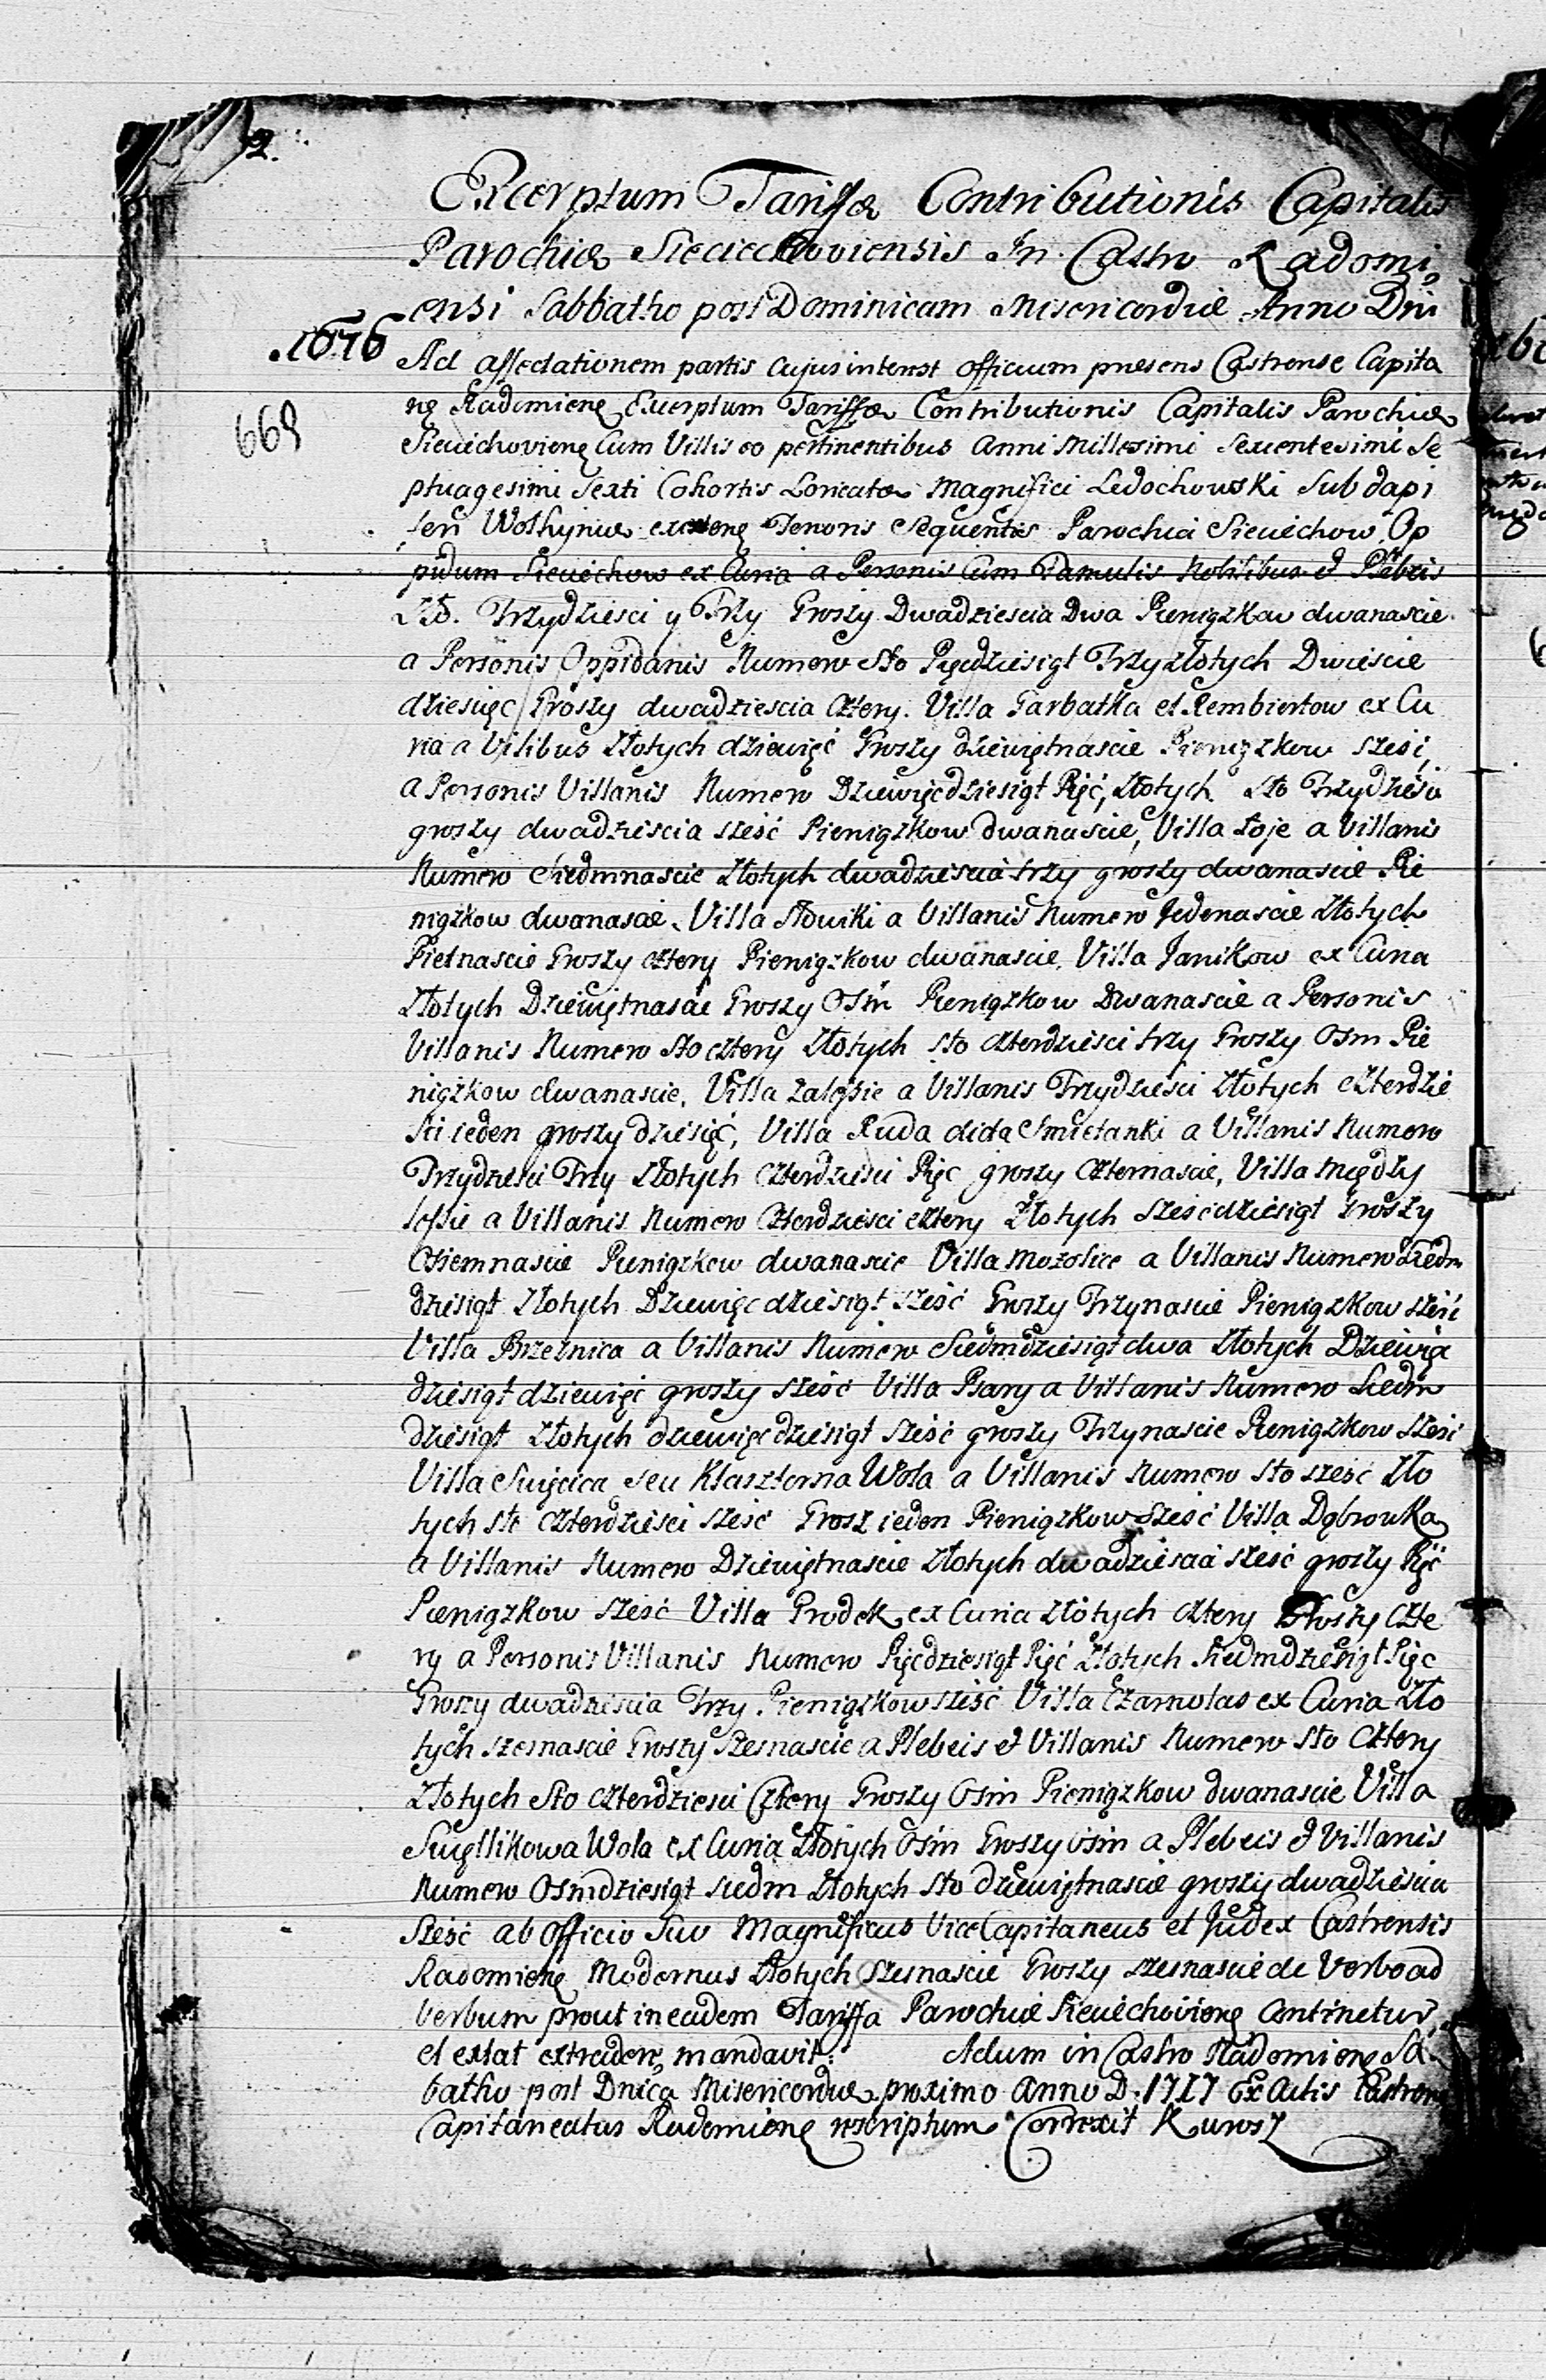 2.
Excerptum Tariffæ Contributionis Capitalis
Parochiæ Sieciechoviensis In Castro Radomi,
ensi Sabbatho post Dominicam Misericordiæ Anno Dni
1676
Ad affectationem partis cujus interest officium præsens Castrense Capita
nę Radomienę Excerptum Tariffæ Contributionis Capitalis Parochiæ
669
Sieciechovienę Cum Villis eo pertinentibus Anni Millesimi Sexcentesimi Se
ptuagesimi Sexti Cohortis Loricatæ Magnifici Ledochowski Subdapi
feri Wolhyniæ Tenoris Sequentis Parochia Sieciechow Op
pidum Sieciechow ex Curia a Personis Cum Famulis Nobilibus et Plebeis
Zło. Trzydziesci y Trzy Groszy Dwadziescia Dwa Pieniązkow dwanascie
a Personis Oppidanis Numero Sto Pięcdziesiąt Trzy złotych Dwiescie
dziesięc Groszy dwadziescia cztery. Villa Garbatka et Rembiertow ex Cu
ria a Vilibus Złotych dziewięć Groszy dziewiętnascie Pieniązkow sześć,
a Personis Villanis Numero Dziewięcdziesiąt Pięć, złotych Sto Trzydzieści
groszy dwadziescia sześć Pieniązkow dwanascie, Villa Łoje a Villanis
Numero Siedmnascie Złotych dwadziescia trzy groszy dwanascie Pie
niązkow dwanascie. Villa Słowiki a Villanis Numero Jedenascie Złotych
Pietnascie Groszy cztery Pieniązkow dwanascie. Villa Janikow ex Curia
Złotych Dziewiętnascie Groszy Ośm Pieniązkow Dwanascie a Personis
Villanis Numero Sto cztery Złotych sto czterdzieści trzy Groszy Osm Pie
niązkow dwanascie. Villa Zalesie a Villanis Trzydzieści Złotych czterdzie
sci ieden groszy dziesięć, Villa Ruda dicta Smietanki a Villanis Numero
Trzydziesci Trzy Złotych Czterdziesci Pięc groszy czternascie, Villa Między
lesie a Villanis Numero Czterdziesci cztery Złotych sześcdziesiąt Groszy
Osiemnascie Pieniązkow dwanascie Villa Mozolice a Villanis Numero Siedm
dziesiąt Złotych Dziewięcdziesiąt sześć Groszy Trzynascie Pieniązkow sześć
Villa Brzeznica a Villanis Numero Siedmdziesiąt dwa Złotych Dziewięć
dziesiąt dziewięć groszy sześć Villa Psary a Villanis Numero Siedm
dziesiąt Złotych dziewięcdziesiąt sześć groszy Trzynascie Pieniązkow sześć
Villa Swięcica seu Klasztorna Wola a Villanis Numero sto szesc Zło
tych sto czterdziesci sześć Grosz ieden Pieniązkow sześć Villa Dąbrowka
a Villanis Numero Dziewiętnascie Złotych dwadziescia sześć groszy Pięć
Pieniązkow sześć Villa Grodek ex Curia Złotych cztery Groszy czte
ry a Personis Villanis Numero Pięcdziesiąt Pięć Złotych Siedmdziesiąt Pięc
Groszy dwadziescia Trzy Pieniązkow sześć Villa Czarnolas ex Curia Zło
tych szesnascie Groszy Szesnascie a Plebeis et Villanis Numero Sto Cztery
Złotych Sto Czterdziesci Cztery Groszy Ośm Pieniązkow dwanascie Villa
Swętlikowa Wola ex Curia Złotych Ośm Groszy ośm a Plebeis et Villanis
Numero Ośmdziesiąt siedm Złotych sto dziewiętnascie groszy dwadzieścia
sześć ab Officio Suo Magnificus ViceCapitaneus et Judex Castrensis
Radomienę Modernus Złotych szesnascie Groszy szesnascie de Verbo ad
Verbum prout in eadem Tariffa Parochiæ Sieciechovienę Continetur
et extat extradere mandavit: Actum in Castro Radomienę Sa
batho post Dnicą Misericordiæ proximo Anno D. 1717 Ex Actis Castrenę
Capitaneatus Radomienę rescriptum Correxit Kurosz